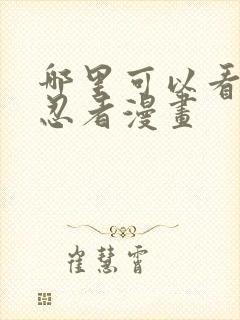 哪里可以看
忍者漫畫
崔慧霄